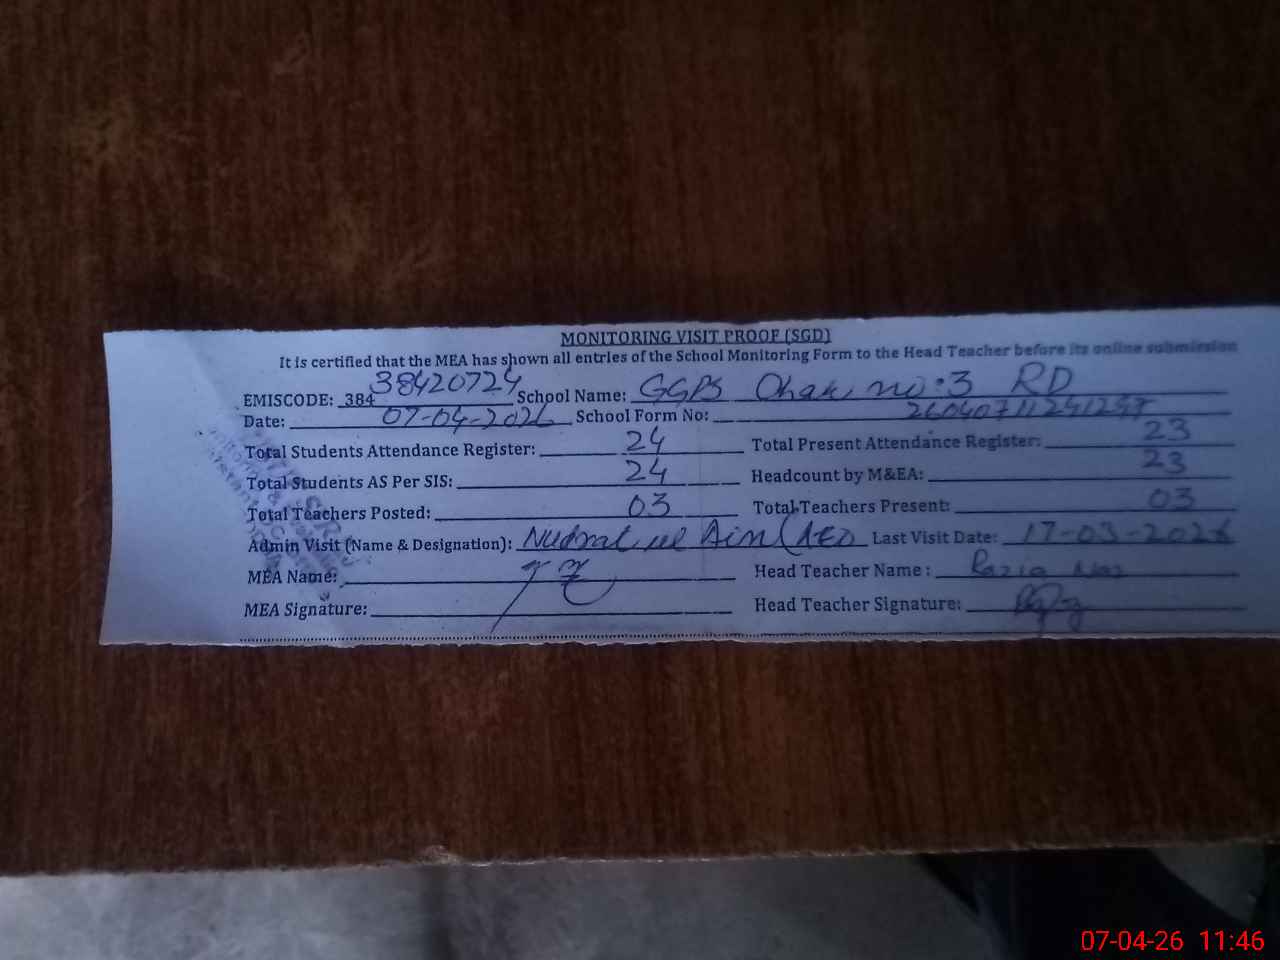 MONITORING VISIT PROOF (SGD)
It is certified that the MEA has shown all entries of the School Monitoring Form to the Head Teacher before its online submission
EMISCODE: 384 38420724 School Name: GGPS Chak no:3 RD
Date: 07-04-2026 School Form No:
Total Students Attendance Register: 24 Total Present Attendance Register: 23
Total Students AS Per SIS: 24 Headcount by M&EA: 23
Total Teachers Posted: 03 Total Teachers Present: 03
Admin Visit (Name & Designation): Nudrat ul Ain (AEO Last Visit Date: 17-03-2026
MEA Name: Head Teacher Name: Razia Naz
MEA Signature: Head Teacher Signature:
07-04-26 11:46